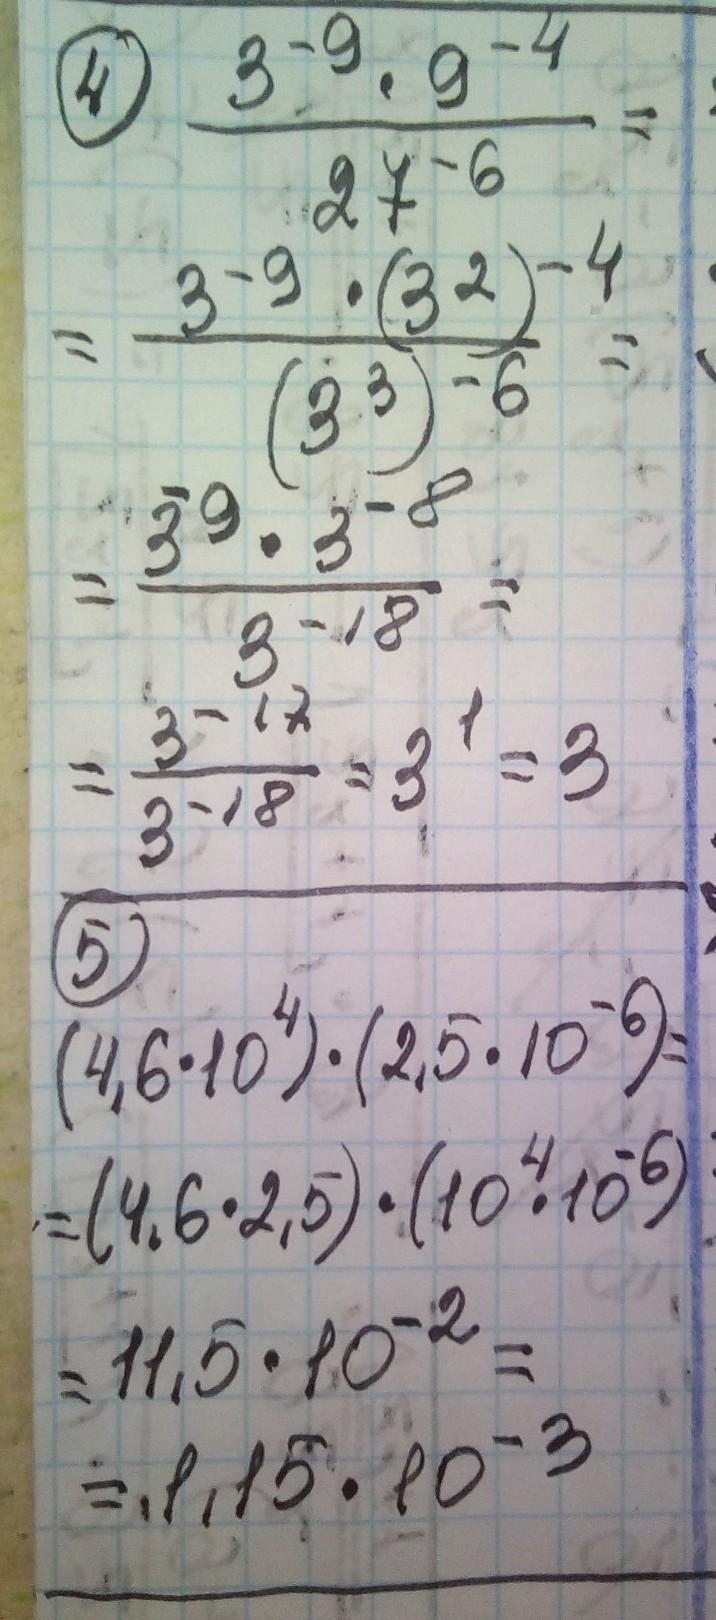 ④ (3⁻⁹ · 9⁻⁴) / 27⁻⁶ =
= (3⁻⁹ · (3²)⁻⁴) / (3³)⁻⁶ =
= (3⁻⁹ · 3⁻⁸) / 3⁻¹⁸ =
= 3⁻¹⁷ / 3⁻¹⁸ = 3¹ = 3
⑤
(4,6·10⁴)·(2,5·10⁻⁶)=
=(4,6·2,5)·(10⁴·10⁻⁶)
= 11,5·10⁻² =
= 1,15·10⁻³